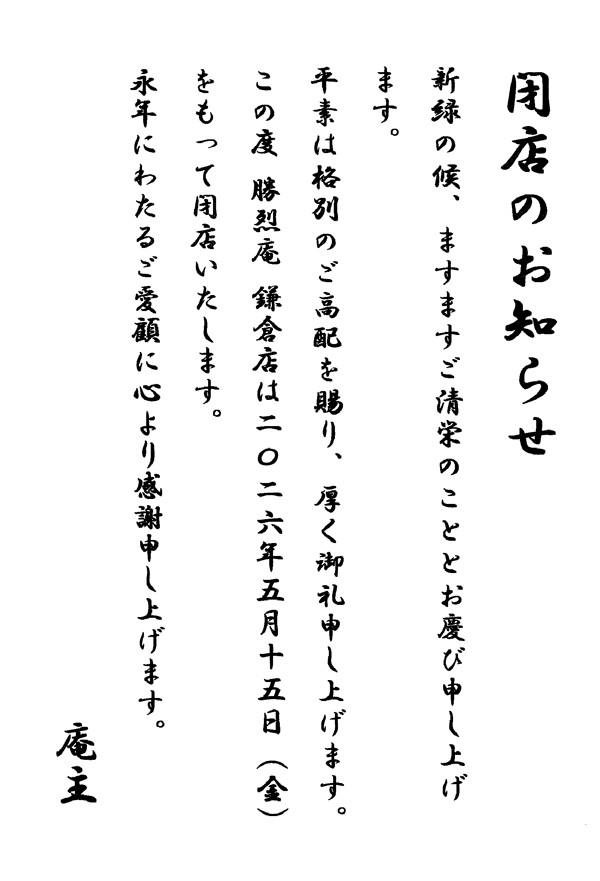 閉店のお知らせ
新緑の候、ますますご清栄のこととお慶び申し上げ
ます。
平素は格別のご高配を賜り、厚く御礼申し上げます。
この度 勝烈庵 鎌倉店は二〇二六年五月十五日（金）
をもって閉店いたします。
永年にわたるご愛顧に心より感謝申し上げます。
庵主